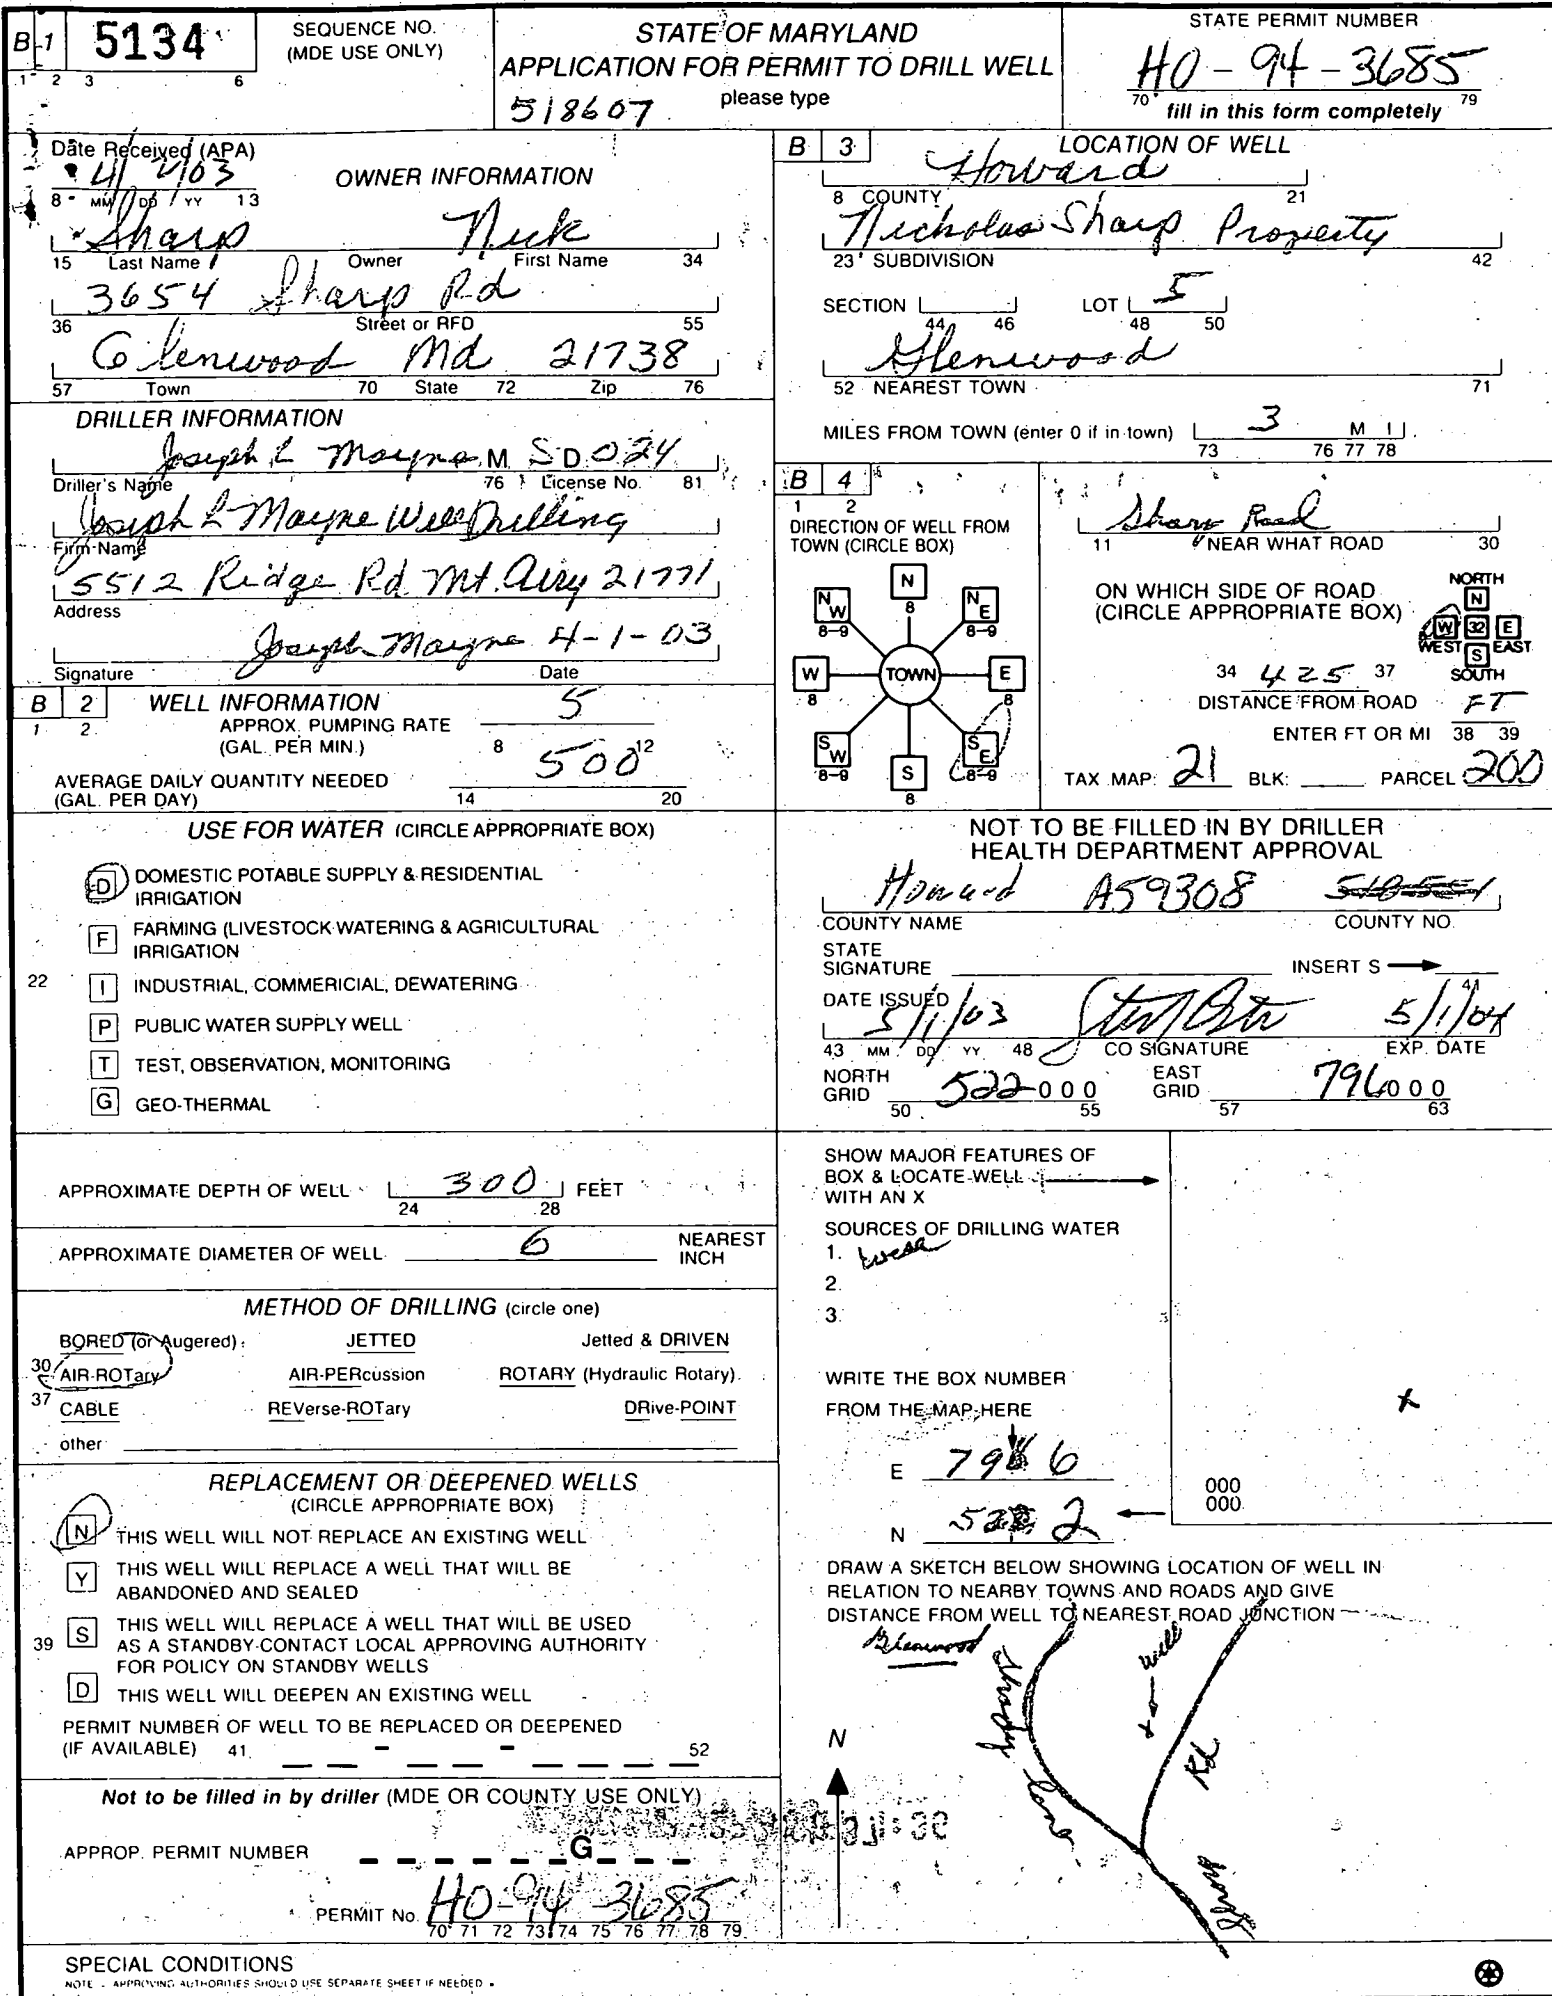 B 1 5134 SEQUENCE NO. (MDE USE ONLY)
1 2 3 6
STATE OF MARYLAND
APPLICATION FOR PERMIT TO DRILL WELL
please type
518607
STATE PERMIT NUMBER
HO-94-3685
70 79
fill in this form completely
Date Received (APA)
8 MM DD YY 13
OWNER INFORMATION
Sharp Nick
15 Last Name Owner First Name 34
3654 Sharp Rd
36 Street or RFD 55
Glenwood Md 21738
57 Town 70 State 72 Zip 76
DRILLER INFORMATION
Joseph L Mayne M S D 024
Driller's Name 76 License No. 81
Joseph L Mayne Well Drilling
Firm Name
5512 Ridge Rd Mt. Airy 21771
Address
Joseph Mayne 4-1-03
Signature Date
B 2 WELL INFORMATION
1 2
APPROX. PUMPING RATE (GAL. PER MIN.) 5
8 12
AVERAGE DAILY QUANTITY NEEDED (GAL. PER DAY) 500
14 20
USE FOR WATER (CIRCLE APPROPRIATE BOX)
D DOMESTIC POTABLE SUPPLY & RESIDENTIAL
IRRIGATION
F FARMING (LIVESTOCK WATERING & AGRICULTURAL
IRRIGATION
22 I INDUSTRIAL, COMMERICIAL, DEWATERING
P PUBLIC WATER SUPPLY WELL
T TEST, OBSERVATION, MONITORING
G GEO-THERMAL
APPROXIMATE DEPTH OF WELL 300 FEET
24 28
APPROXIMATE DIAMETER OF WELL 6 NEAREST INCH
METHOD OF DRILLING (circle one)
BORED (or Augered) JETTED Jetted & DRIVEN
30 AIR-ROTary AIR-PERcussion ROTARY (Hydraulic Rotary)
37 CABLE REVerse-ROTary DRive-POINT
other
REPLACEMENT OR DEEPENED WELLS
(CIRCLE APPROPRIATE BOX)
N THIS WELL WILL NOT REPLACE AN EXISTING WELL
Y THIS WELL WILL REPLACE A WELL THAT WILL BE
ABANDONED AND SEALED
39 S THIS WELL WILL REPLACE A WELL THAT WILL BE USED
AS A STANDBY-CONTACT LOCAL APPROVING AUTHORITY
FOR POLICY ON STANDBY WELLS
D THIS WELL WILL DEEPEN AN EXISTING WELL
PERMIT NUMBER OF WELL TO BE REPLACED OR DEEPENED
(IF AVAILABLE) 41 - - 52
Not to be filled in by driller (MDE OR COUNTY USE ONLY)
APPROP. PERMIT NUMBER G
PERMIT No. HO-94-3685
70 71 72 73 74 75 76 77 78 79
SPECIAL CONDITIONS
NOTE - APPROVING AUTHORITIES SHOULD USE SEPARATE SHEET IF NEEDED
B 3 LOCATION OF WELL
Howard
8 COUNTY 21
Nicholas Sharp Property
23 SUBDIVISION 42
SECTION LOT 5
44 46 48 50
Glenwood
52 NEAREST TOWN 71
MILES FROM TOWN (enter 0 if in town) 3 M I
73 76 77 78
B 4
1 2
DIRECTION OF WELL FROM
TOWN (CIRCLE BOX)
N 8
NW 8-9 NE 8-9
W 8 TOWN E 8
SW 8-9 SE 8-9
S 8
Sharp Road
11 NEAR WHAT ROAD 30
ON WHICH SIDE OF ROAD
(CIRCLE APPROPRIATE BOX)
NORTH
N
W 32 E
WEST EAST
S
SOUTH
34 425 37
DISTANCE FROM ROAD FT
ENTER FT OR MI 38 39
TAX MAP: 21 BLK: PARCEL 200
NOT TO BE FILLED IN BY DRILLER
HEALTH DEPARTMENT APPROVAL
Howard A59308
COUNTY NAME COUNTY NO.
STATE
SIGNATURE INSERT S
41
DATE ISSUED
5/1/03 5/1/04
43 MM DD YY 48 CO SIGNATURE EXP. DATE
NORTH GRID 522000 EAST GRID 796000
50 55 57 63
SHOW MAJOR FEATURES OF
BOX & LOCATE WELL
WITH AN X
SOURCES OF DRILLING WATER
1. well
2.
3.
WRITE THE BOX NUMBER
FROM THE MAP HERE
X
E 796
000
000
N 522
DRAW A SKETCH BELOW SHOWING LOCATION OF WELL IN
RELATION TO NEARBY TOWNS AND ROADS AND GIVE
DISTANCE FROM WELL TO NEAREST ROAD JUNCTION
Glenwood
Shady Lane
well
x
N
Rd
Sharp